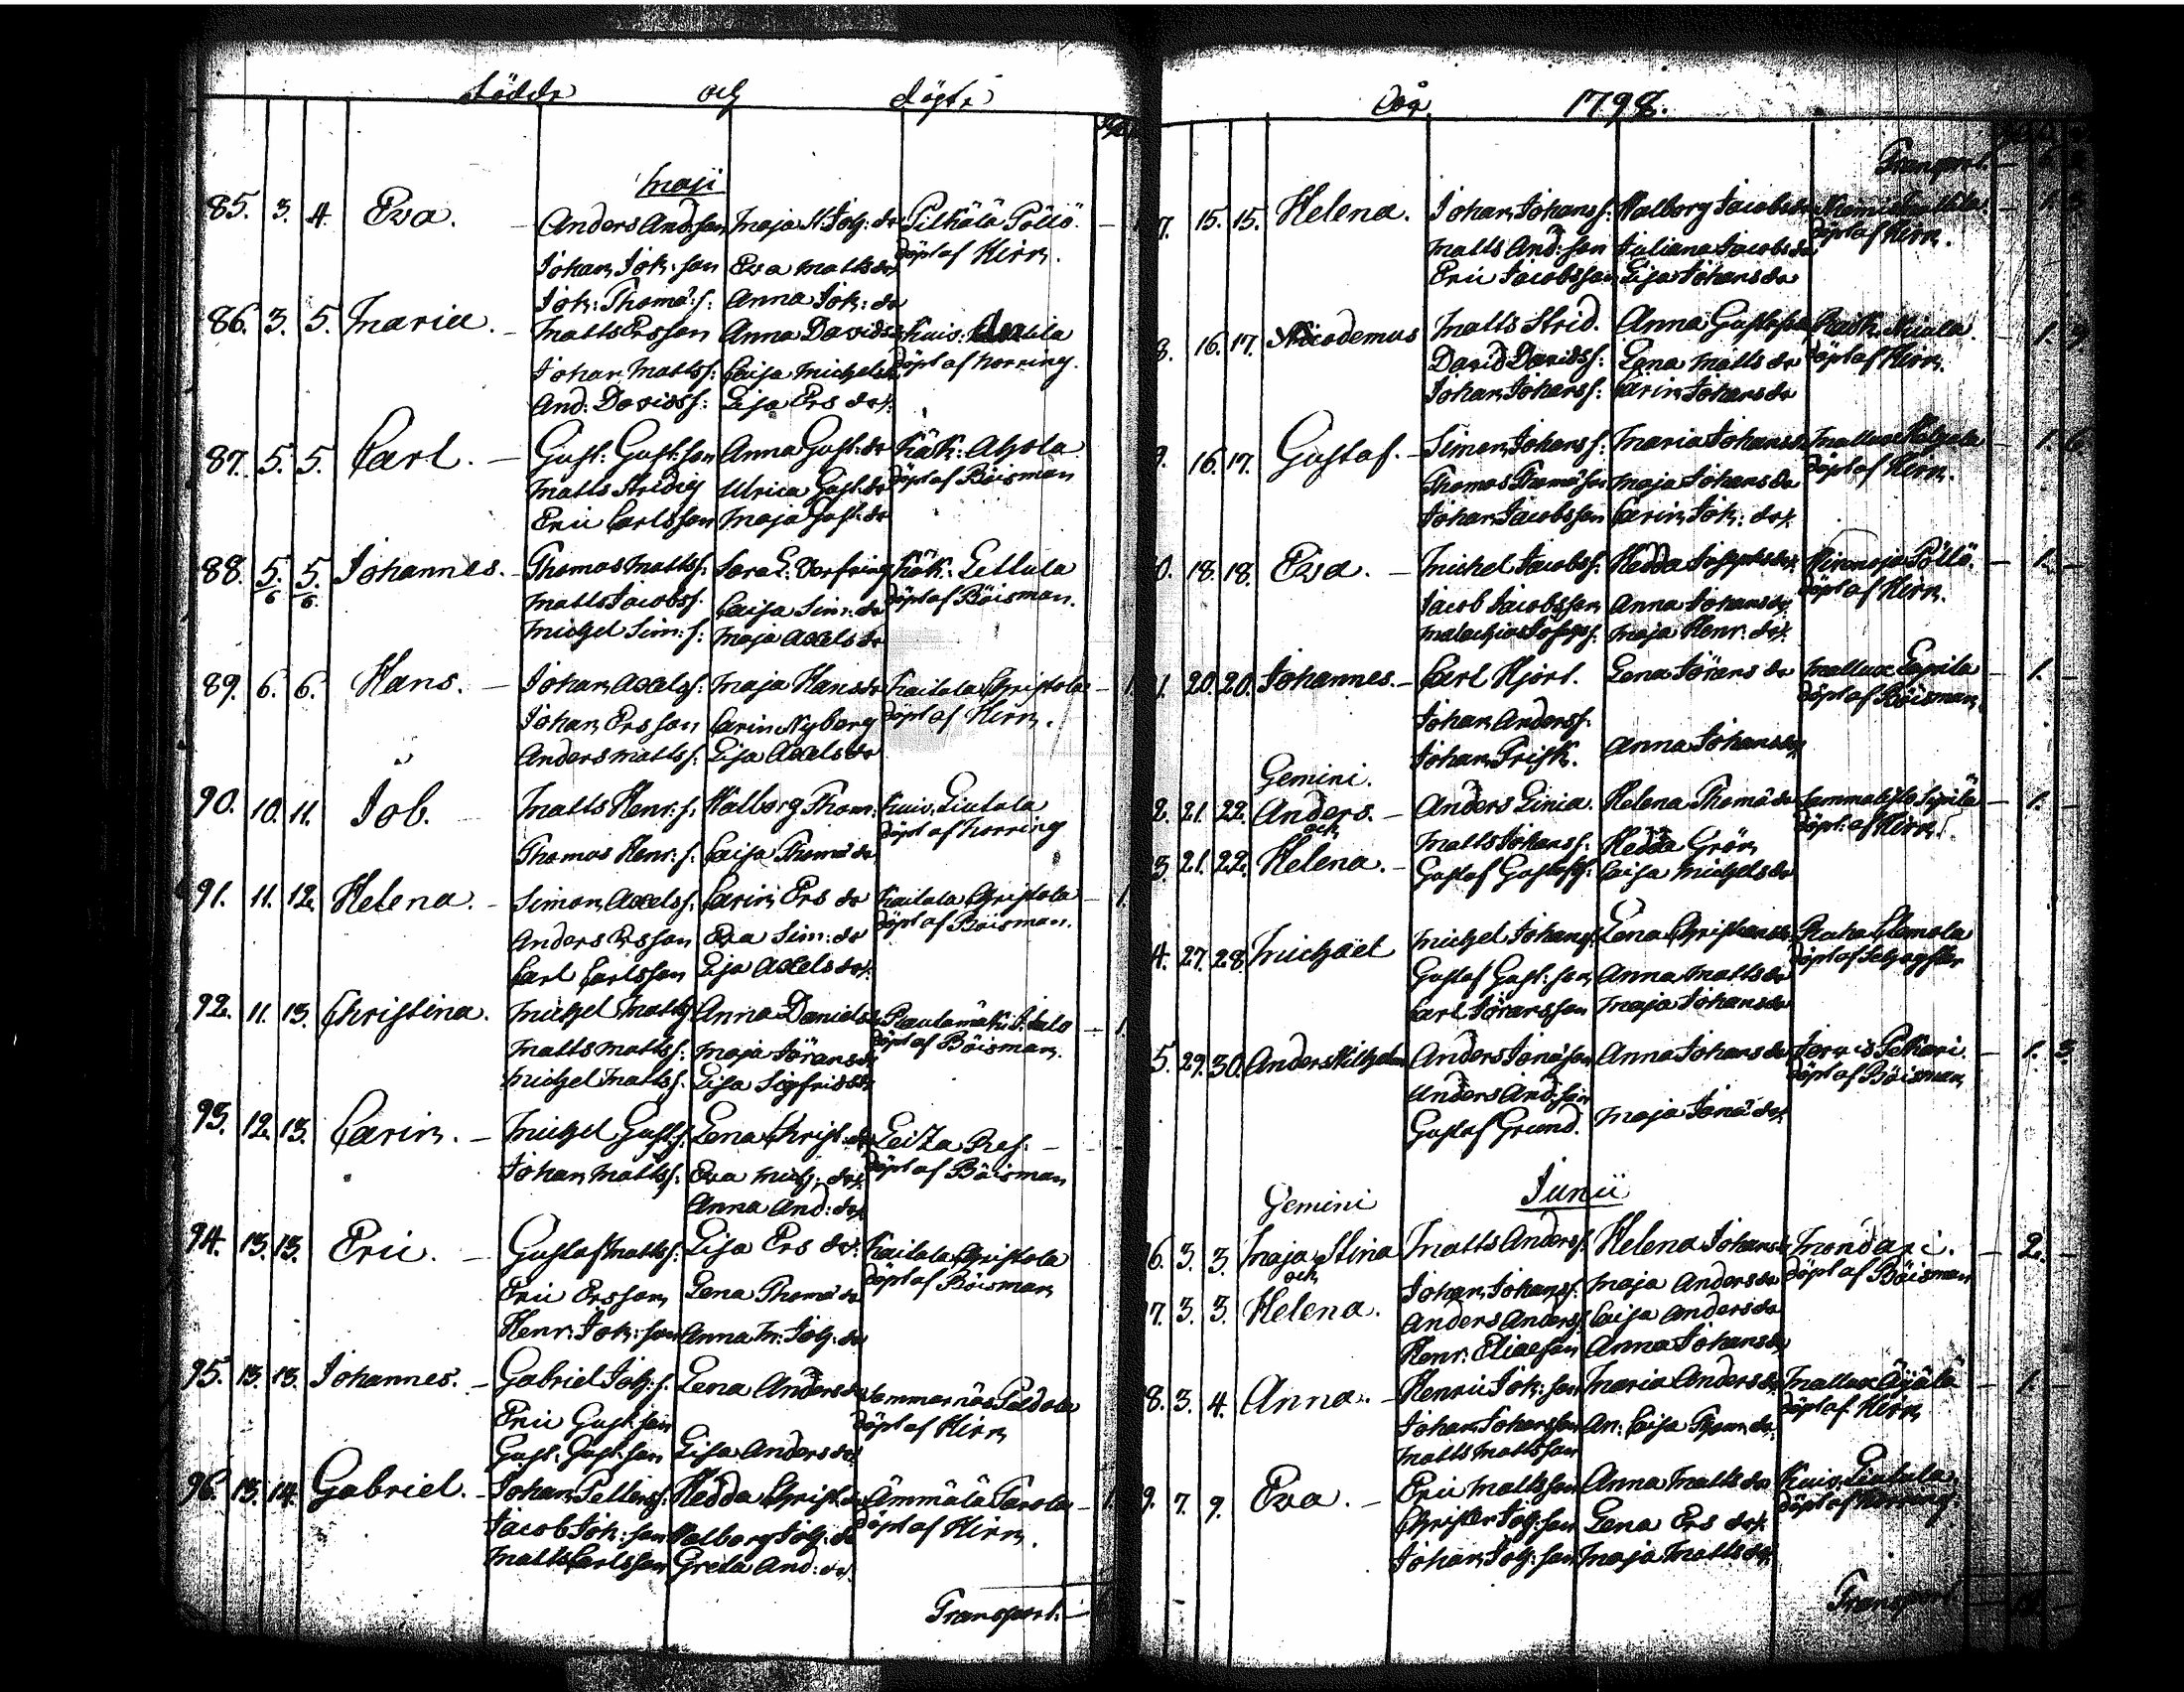 Födde och döpte
Maji
85. 3. 4. Eva. - Anders And:son Maja H. Joh: dr Pilkälä Pöllö.
Johan Joh: son Eva Matts dr döpt af Hirn.
Joh: Thomæ: s: Anna Joh: dr
86. 3. 5. Maria. - Matts Ersson Anna Davids Kuiv:
Johan Matts s: Caisa Michels döpt af Norring.
And: Davids s: Lisa Ers dr.
87. 5. 5. Carl. - Gust: Gust: son Anna Gust: dr Kåk: Ahola
Matts Stridig Ulrica Gust: dr döpt af Böisman
Eric Carlsson Maja Gust: dr
88. 5/6. 5/6. Johannes. - Thomas Matts s: Sara L: Kåk: Lettula
Matts Jacobs s. Caisa Sim: dr döpt af Böisman.
Michel Sim: s: Maja Axels dr
89. 6. 6. Hans. - Johan Axels s: Maja Hans dr Kaitala Christola - 1.
Johan Ersson Carin Nyberg döpt af Hirn.
Anders Matts s: Lisa Axels dr
90. 10. 11. Job. Matts Henr: s: Walborg Thom: Kuiv. Liutula
Thomas Henr: s: Caisa Thomæ dr döpt af Norring
91. 11. 12. Helena. - Simon Axels s: Carin Ers dr Kaitala Christola - 1.
Anders Ersson Eva Sim: dr döpt af Böisman.
Carl Carlsson Lisa Axels dr.
92. 11. 13. Christina. Michel Matts s: Anna Daniels Rautamäki - 1.
Matts Matts s: Maja Jörans dr döpt af Böisman.
Michel Matts s: Lisa Sigfrids dr
93. 12. 13. Carin. - Michel Gust: s: Lena Christ: dr
Johan Matts s: Eva Mich: dr. döpt af Böisman
Anna And: dr.
94. 13. 13. Eric. - Gustaf Matts s: Lisa Ers dr. Kaitala Christola
Eric Ersson Lena Thomæ dr döpt af Böisman
Henr: Joh: son Anna M: Joh: dr
95. 13. 13. Johannes. - Gabriel Joh: s. Lena Anders dr Sommarnäs Peldola
Eric Gust: son döpt af Hirn
Gust: Gust: son Lisa Anders dr
96. 13. 14. Gabriel. - Johan Hedda Christ: dr Ämmälä Parola - 1.
Jacob Joh: son Walborg Joh: dr döpt af Hirn.
Matts Carlsson Greta And: dr.
Transport. -
1798.
Transport. -
7. 15. 15. Helena. Johan Johans s: Walborg Jacobs dr - 1.
Matts And: son Juliana Jacobs dr döpt af Hirn.
Eric Jacobsson Lisa Johans dr
8. 16. 17. Nicodemus Matts Strid. Anna Gustafs - 1.
David Davids s: Lena Matts dr döpt af Hirn.
Johan Johans s: Carin Johans dr
9. 16. 17. Gustaf. - Simon Johans s: Maria Johans - 1.
Thomas Thomæ son Maja Johans dr döpt af Hirn.
Johan Jacobsson Carin Joh: dr.
0. 18. 18. Eva. - Michel Jacobs s: Hedda Josephs dr Hirvoja Pöllö. - 1. -
Jacob Jacobsson Anna Johans dr. döpt af Hirn.
Malachias Josephs s: Maja Henr: dr.
1. 20. 20. Johannes. - Carl Hjort. Lena Jörans dr - 1. -
Johan Anders s. döpt af Böisman
Johan Frisk. Anna Johans dr
Gemini.
2. 21. 22. Anders. - Anders Linia. Helena Thomæ dr - 1. -
och Matts Johans s: Hedda Grön döpt: af Hirn.
3. 21. 22. Helena. - Gustaf Gustafs s: Caisa Michels dr
4. 27. 28. Michaël Michel Johans s: Lena Christians dr
Gustaf Gust: son Anna Matts dr
Carl Jöransson Maja Johans dr
5. 29. 30. Anders Wilhelm Anders Jonæ son Anna Johans dr Pekkari - 1. 3
Anders And: son döpt af Böisman
Gustaf Grund. Maja Jonæ dr.
Junii
Gemini
6. 3. 3. Maja Stina Matts Anders s: Helena Johans - 2. -
och Johan Johans s: Maja Anders dr döpt af Böisman
7. 3. 3. Helena. Anders Anders s: Caisa Anders dr
Henr: Eliæ son Anna Johans dr
8. 3. 4. Anna. - Henric Joh: son Maria Anders dr - 1. -
Johan Johansson An: Caisa Thom: dr. döpt af Hirn
Matts Mattsson
9. 7. 9. Eva. - Eric Mattsson Anna Matts dr Kuiv. Liutula
Christer Joh: son Lena Ers dr. döpt af Norring.
Johan Joh: son Maja Matts dr.
Transport. -